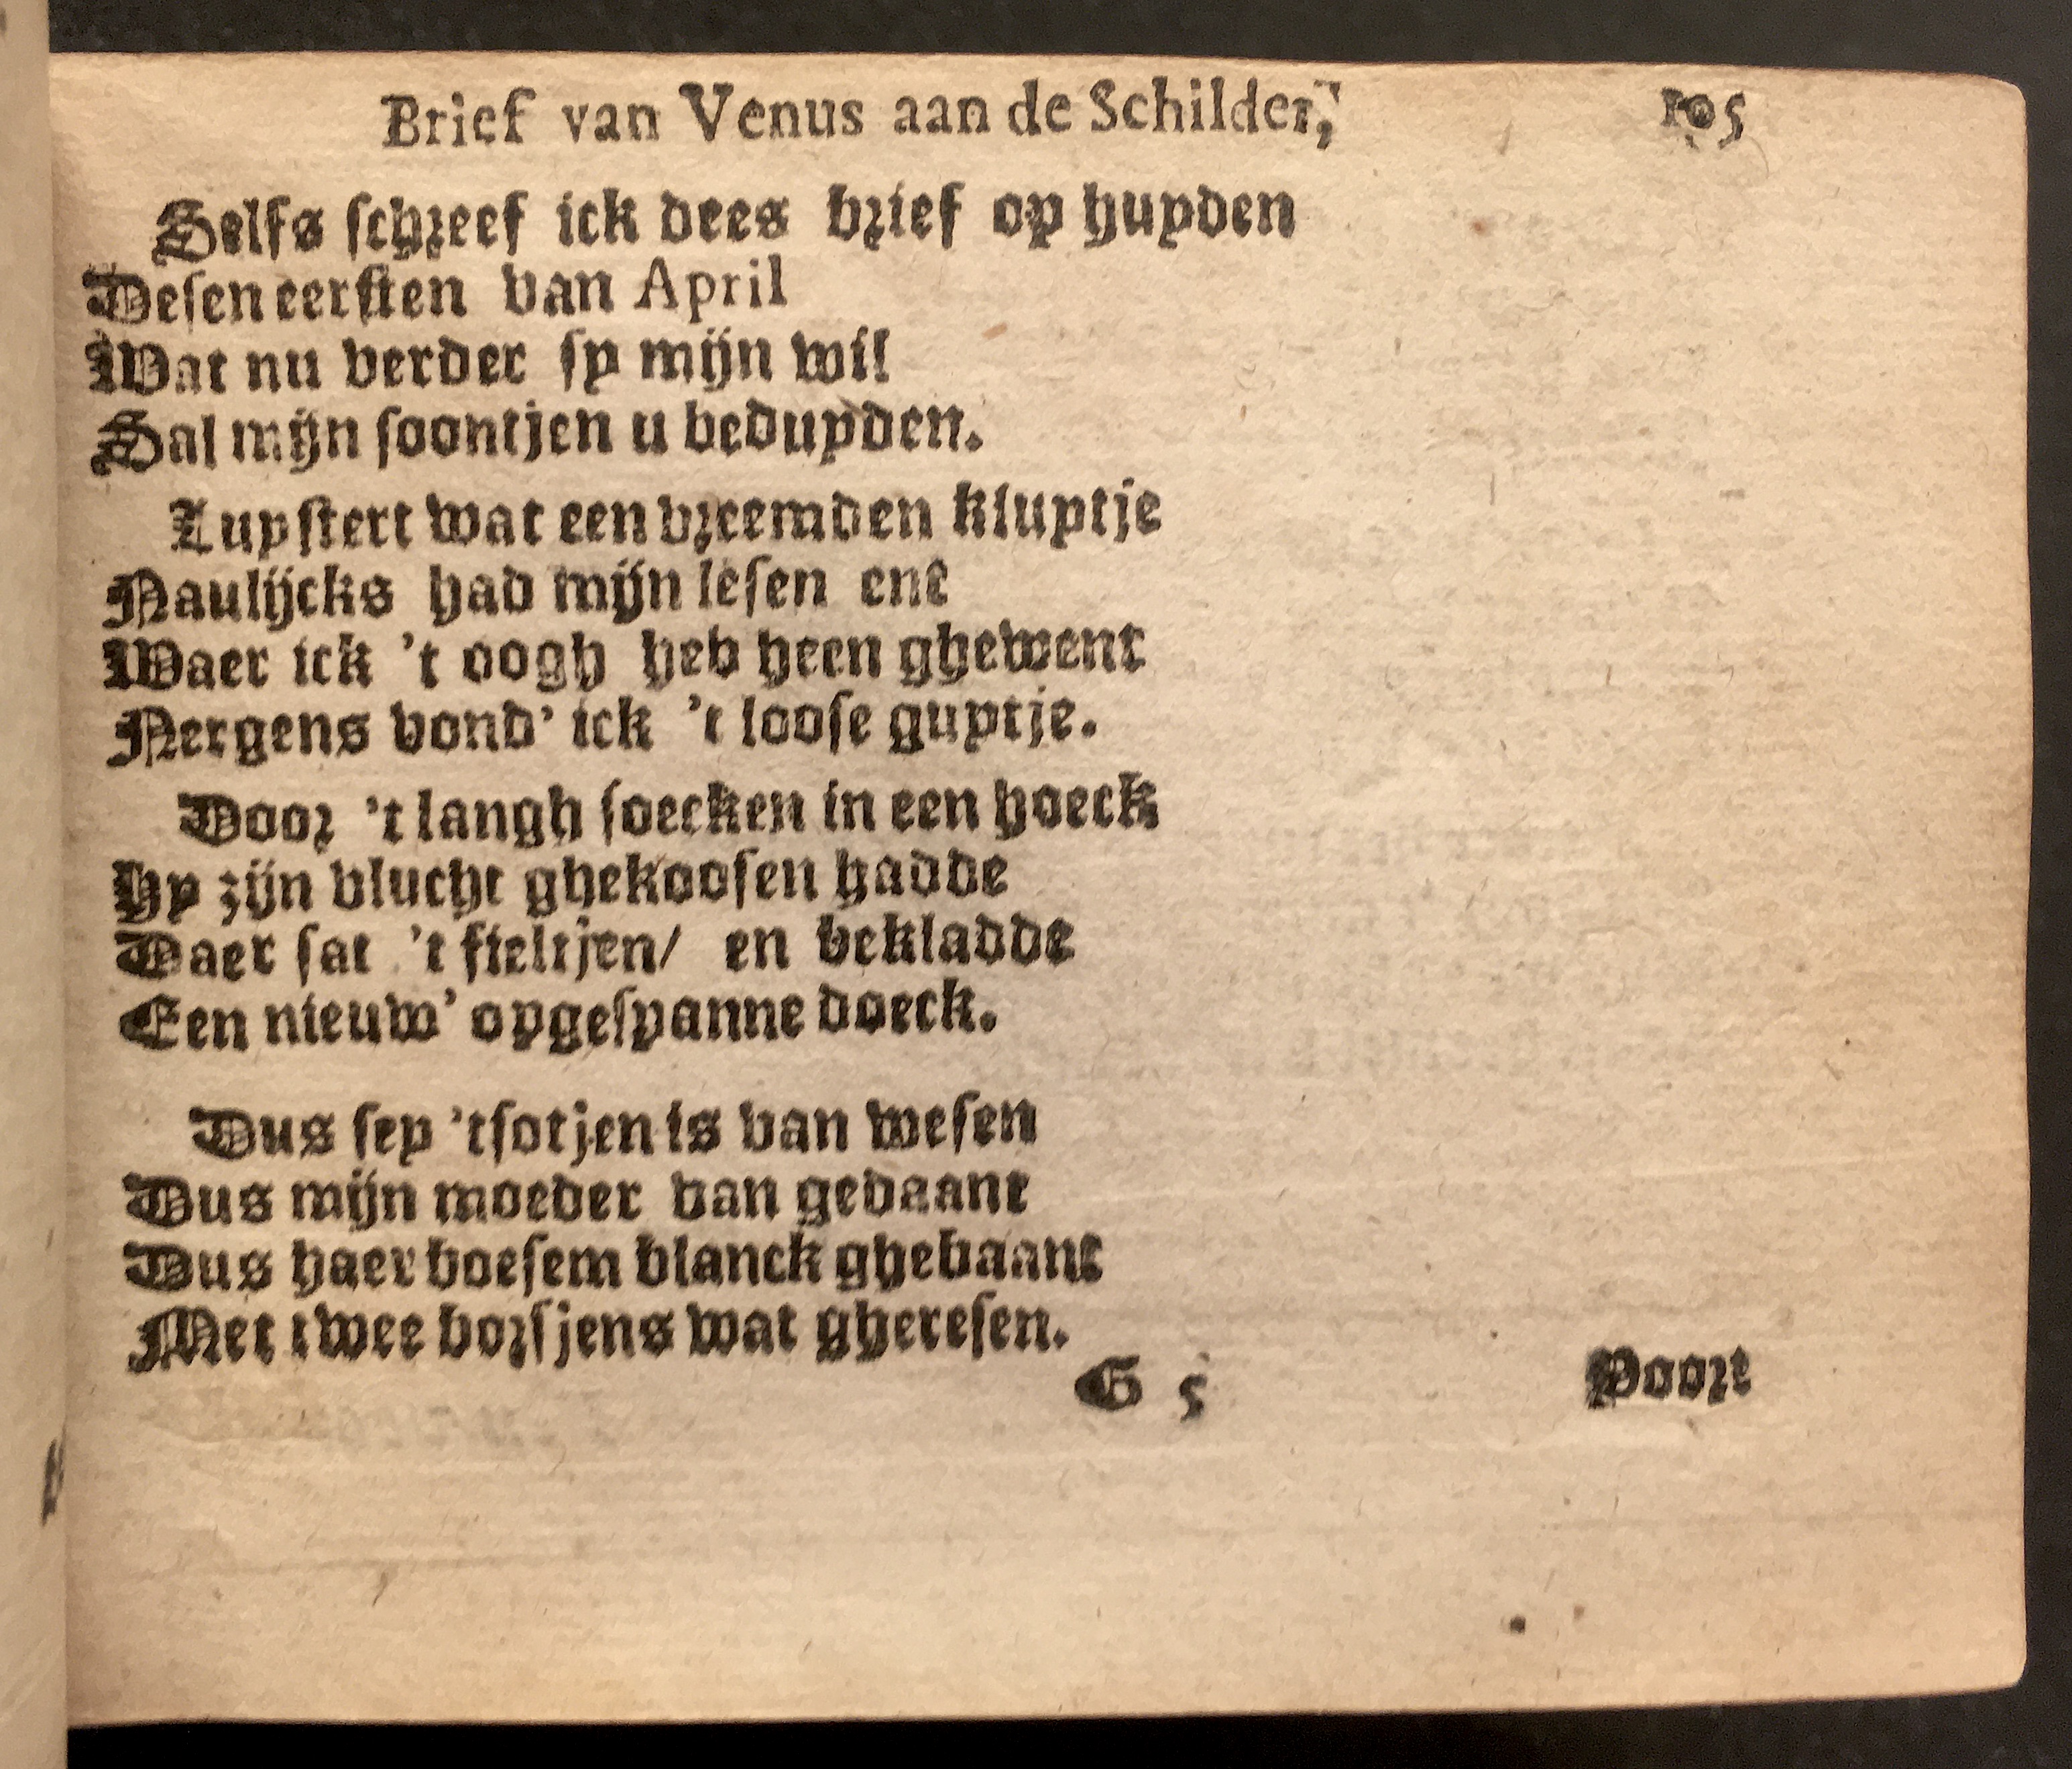 Brief van Venus aan de Schilder, 105
Selfs schreef ick dees brief op huyden
Desen eersten van April
Wat nu verder sy mijn wil
Sal mijn soontjen u beduyden.
Luystert wat een vreemden kluytje
Naulijcks had mijn lesen ent
Waer ick 't oogh heb heen ghewent
Nergens vond' ick 't loose guytje.
Door 't langh soecken in een hoeck
Hy zijn vlucht ghekoosen hadde
Daer sat 't fieltjen/ en bekladde
Een nieuw' opgespanne doeck.
Dus sey 'tsotjen is van wesen
Dus mijn moeder van gedaant
Dus haer boesem blanck ghebaant
Met twee borsjens wat gheresen.
G 5 Voort